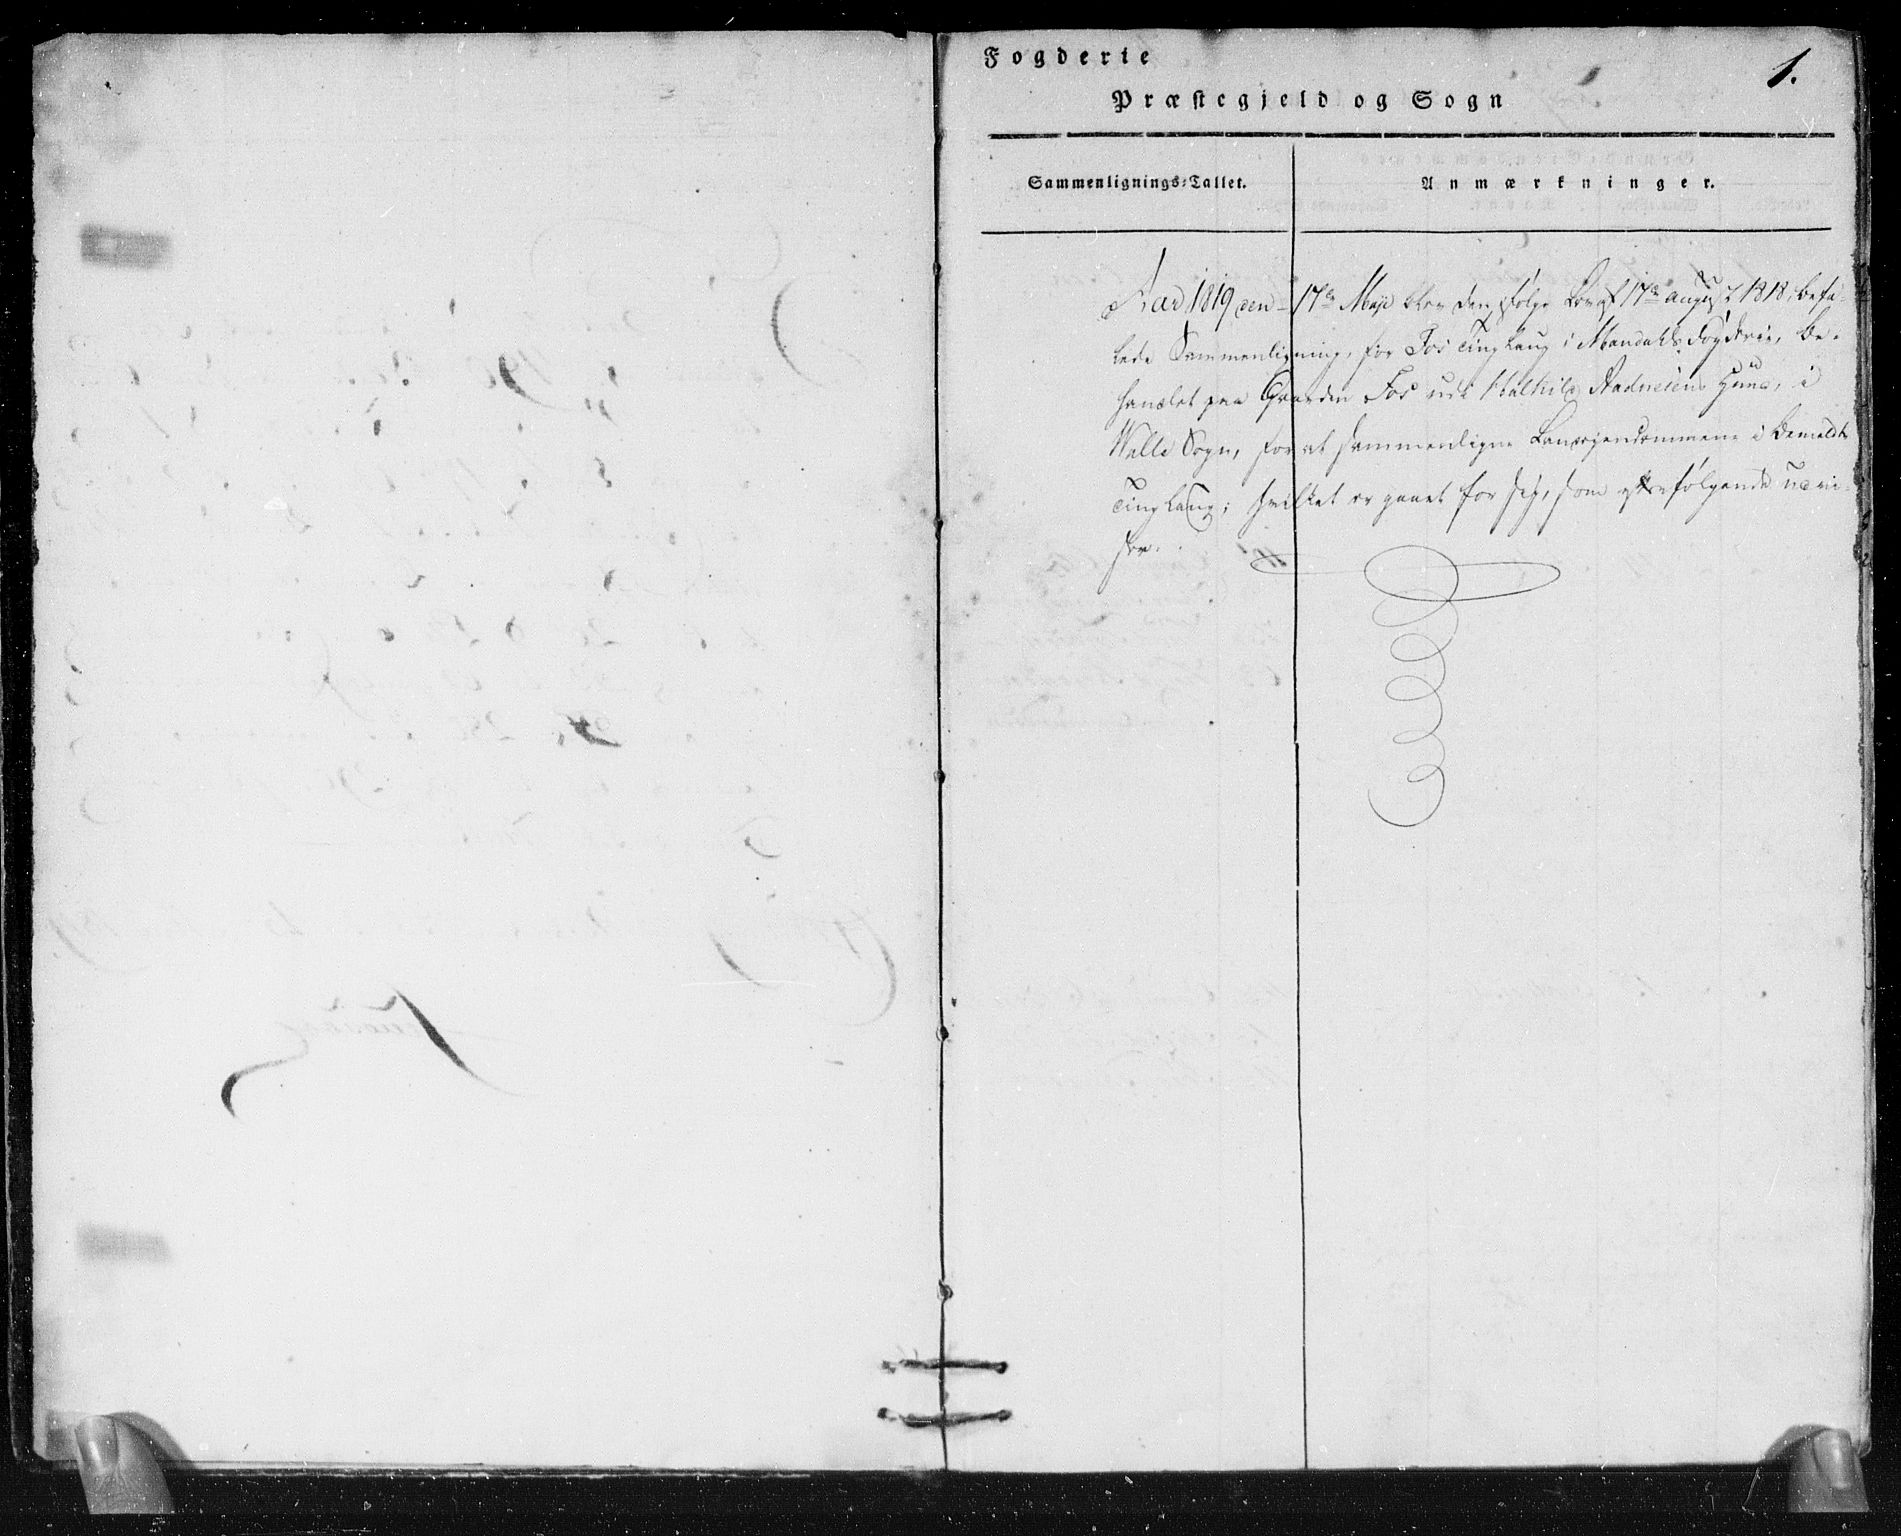 Fogderie
1.
Præstegjeld og Sogn
Sammenlignings-Tallet.
Anmærkninger.
Aar 1819 den 17de Maji blev den, ifølge Lov af 17de august 1818, befa-
lede Sammenligning, for Fos Tinglaug i Mandals Fogderie, be-
handlet paa Gaarden Fos udi Aadnesens Huus, i
Walle Sogn, for at sammenligne Landejendommene i bemeldte
Tinglaug; hvilket er gaaet for sig, som efterfølgende udvi-
ser.